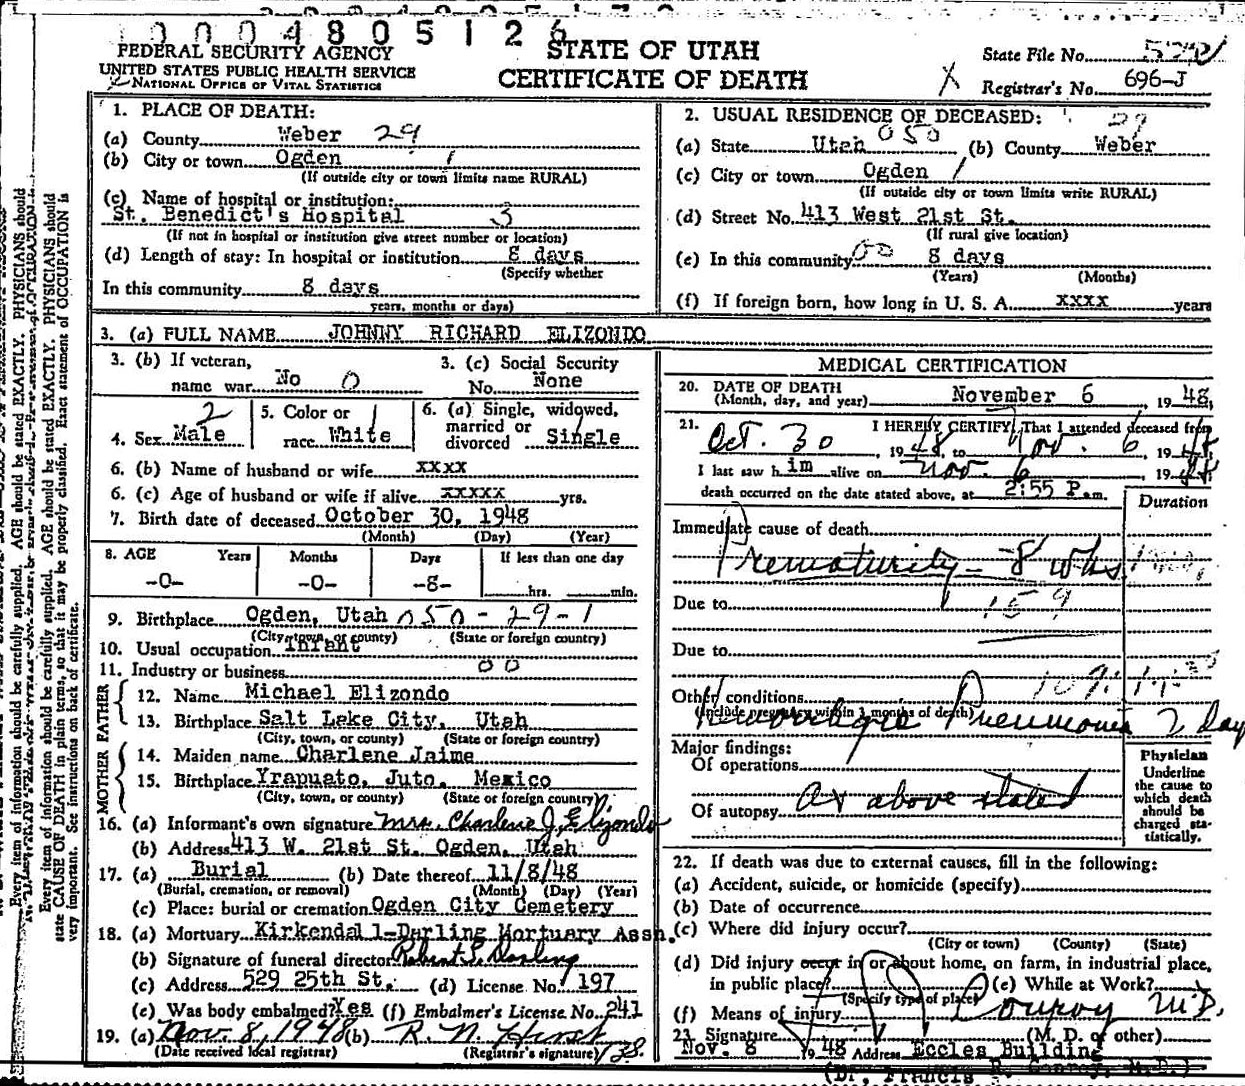 0004805126
FEDERAL SECURITY AGENCY
UNITED STATES PUBLIC HEALTH SERVICE
NATIONAL OFFICE OF VITAL STATISTICS
STATE OF UTAH
CERTIFICATE OF DEATH
State File No.
X Registrar's No. 696-J
1. PLACE OF DEATH:
(a) County Weber 29
(b) City or town Ogden 1
(If outside city or town limits name RURAL)
(c) Name of hospital or institution:
St. Benedict's Hospital 3
(If not in hospital or institution give street number or location)
(d) Length of stay: In hospital or institution 8 days
(Specify whether
In this community 8 days
years, months or days)
2. USUAL RESIDENCE OF DECEASED: 29
(a) State Utah 050 (b) County Weber
(c) City or town Ogden 1
(If outside city or town limits write RURAL)
(d) Street No. 413 West 21st St.
(If rural give location)
(e) In this community 00 8 days
(Years) (Months)
(f) If foreign born, how long in U. S. A. xxxx years
3. (a) FULL NAME JOHNNY RICHARD ELIZONDO
3. (b) If veteran,
name war No 0
3. (c) Social Security
No. None
4. Sex Male 2
5. Color or
race White 1
6. (a) Single, widowed,
married or
divorced Single
6. (b) Name of husband or wife xxxx
6. (c) Age of husband or wife if alive xxxxx yrs.
7. Birth date of deceased October 30, 1948
(Month) (Day) (Year)
8. AGE Years Months Days If less than one day
-0- -0- -8- hrs. min.
9. Birthplace Ogden, Utah 050-29-1
(City, town, or county) (State or foreign country)
10. Usual occupation Infant
11. Industry or business 00
FATHER
12. Name Michael Elizondo
13. Birthplace Salt Lake City, Utah
(City, town, or county) (State or foreign country)
MOTHER
14. Maiden name Charlene Jaime
15. Birthplace Yrapuato, Juto, Mexico
(City, town, or county) (State or foreign country)
16. (a) Informant's own signature Mrs. Charlene J. Elizondo
(b) Address 413 W. 21st St. Ogden, Utah
17. (a) Burial (b) Date thereof 11/8/48
(Burial, cremation, or removal) (Month) (Day) (Year)
(c) Place: burial or cremation Ogden City Cemetery
18. (a) Mortuary Kirkendall-Darling Mortuary Assn.
(b) Signature of funeral director Robert S. Darling
(c) Address 529 25th St. (d) License No. 197
(e) Was body embalmed? Yes (f) Embalmer's License No. 241
19. (a) Nov. 8, 1948 (b) R. N. Hirst
(Date received local registrar) (Registrar's signature)
MEDICAL CERTIFICATION
20. DATE OF DEATH
(Month, day, and year) November 6 1948
21. I HEREBY CERTIFY, That I attended deceased from
Oct. 30, 1948, to Nov. 6, 1948
I last saw him alive on Nov. 6 1948
death occurred on the date stated above, at 2:55 P.m.
Duration
Immediate cause of death
Prematurity - 8 wks.
Due to 159
Due to
Other conditions
(Include pregnancy within 3 months of death)
Hemorrhagic Pneumonia 2 days
Major findings:
Of operations
Of autopsy As above stated
Physician
Underline
the cause to
which death
should be
charged sta-
tistically.
22. If death was due to external causes, fill in the following:
(a) Accident, suicide, or homicide (specify)
(b) Date of occurrence
(c) Where did injury occur?
(City or town) (County) (State)
(d) Did injury occur in or about home, on farm, in industrial place,
in public place? (e) While at Work?
(Specify type of place)
(f) Means of injury
23. Signature Conroy M.D.
(M. D. or other)
Nov. 8 1948 Address Eccles Building
(Dr. Francis R. Conroy, M.D.)
Every item of information should be carefully supplied. AGE should be stated EXACTLY. PHYSICIANS should
state CAUSE OF DEATH in plain terms, so that it may be properly classified. Exact statement of OCCUPATION is
very important. See instructions on back of certificate.